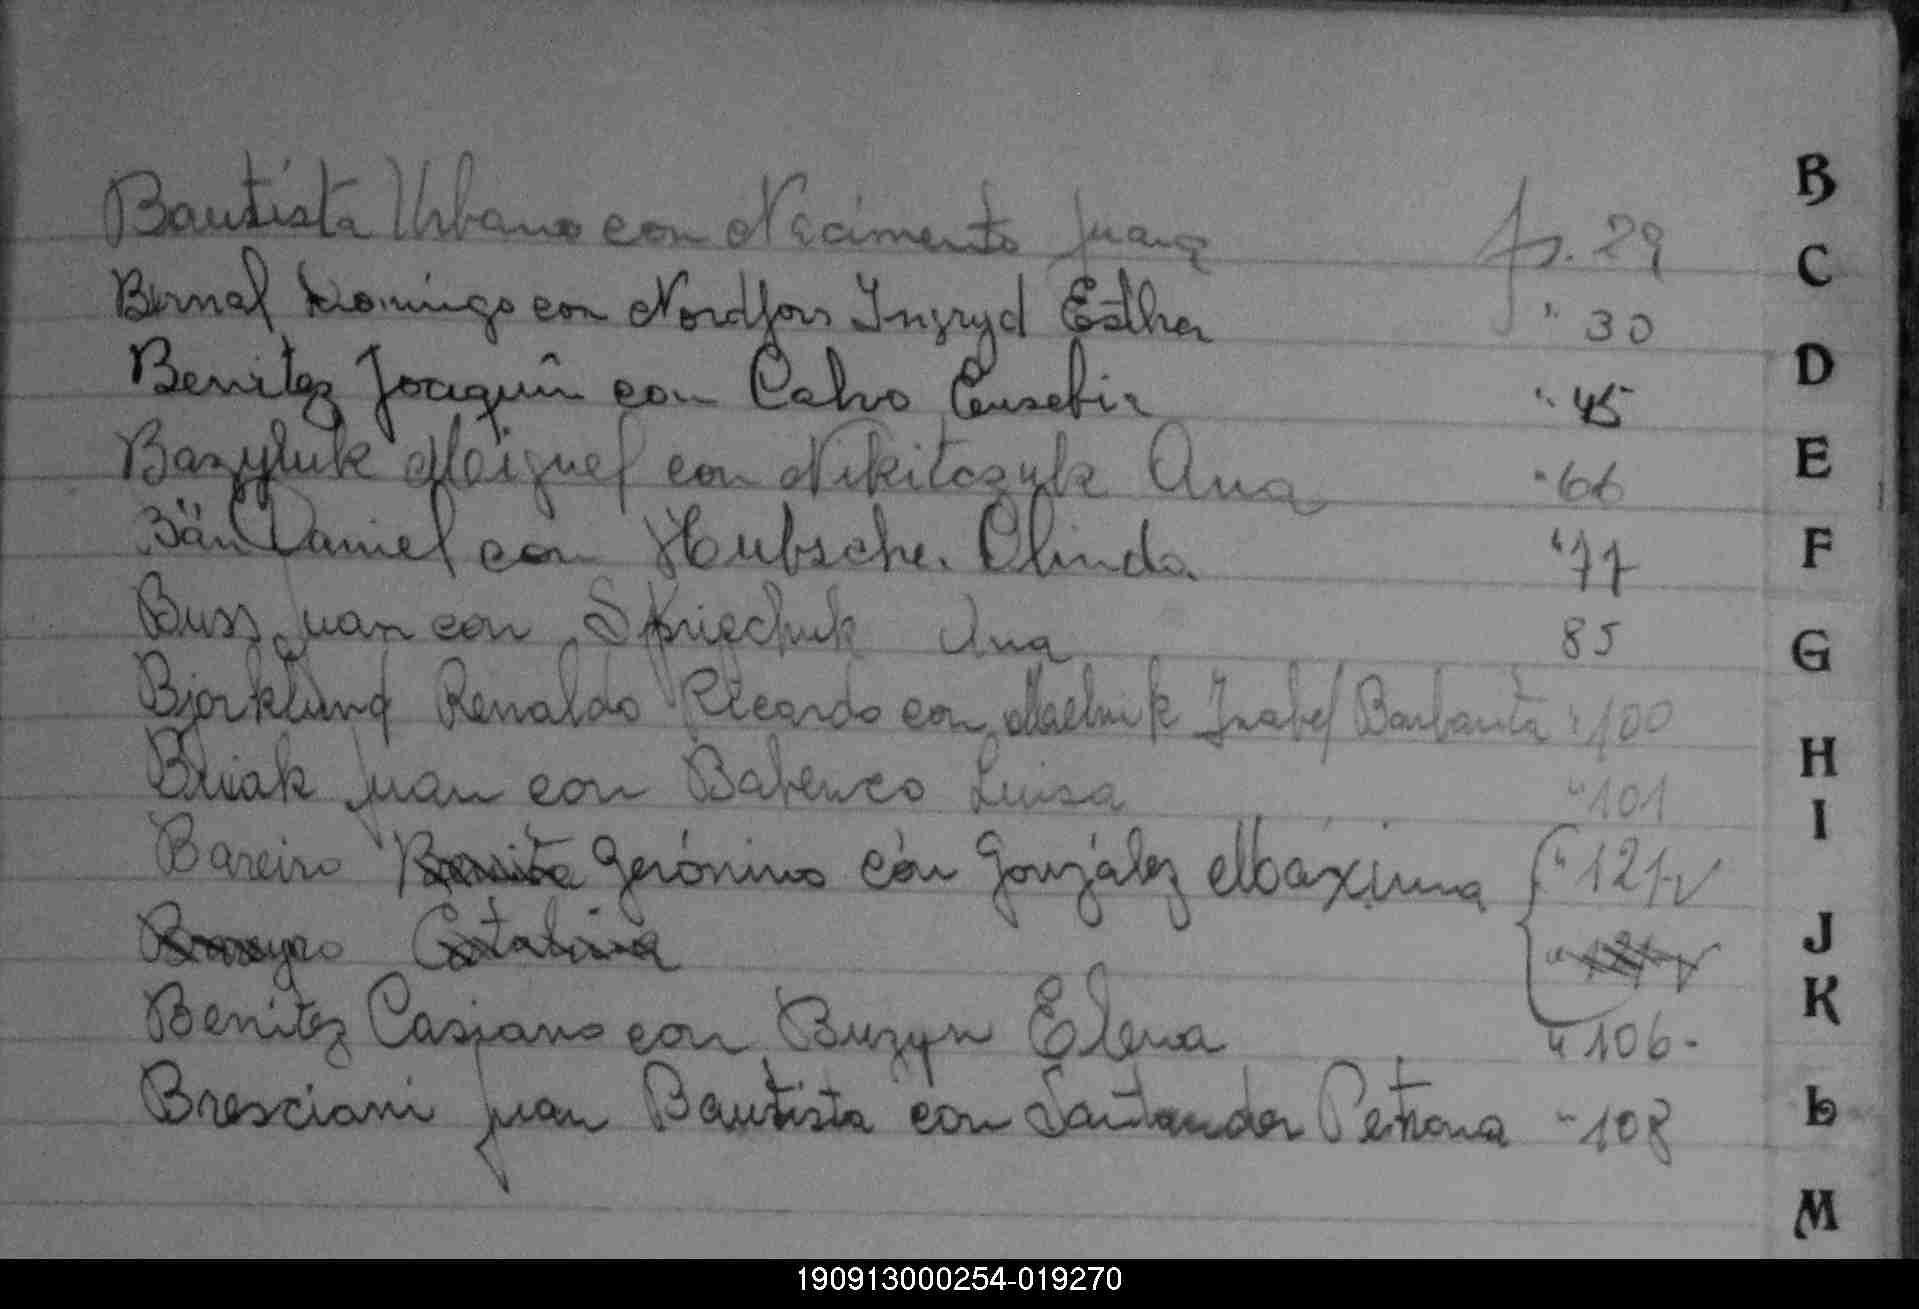 Bautista Urbano con Nacimento Juana fs. 29
Bernal Domingo con Nordfors Ingryd Esther " 30
Benitez Joaquin con Calvo Eusebia " 45
Bazyluk Miguel con Nikitczuk Ana " 66
Bän Daniel con Hubsche. Olinda " 77
Buss Juan con Ana 85
Bjorklund Renaldo Ricardo con Isabel " 100
Juan con Babenco Luisa " 101
Bareiro Gerónimo con González Máxima " 121 v
Catalina
Benitez Casiano con Buzyn Elena " 106-
Bresciani Juan Bautista con Santander Petrona " 108
B
C
D
E
F
G
H
I
J
K
L
M
190913000254-019270